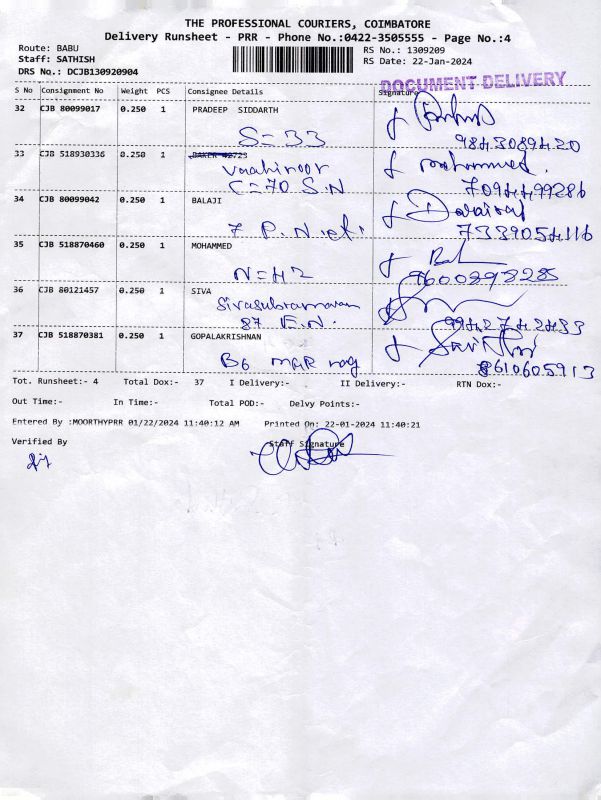 THE PROFESSIONAL COURIERS, COIMBATORE
Delivery Runsheet - PRR - Phone No.:0422-3505555 - Page No.:4
Route: BABU
RS No.: 1309209
Staff: SATHISH
RS Date: 22-Jan-2024
DRS No.: DCJB130920904
DOCUMENT DELIVERY
S No Consignment No Weight PCS Consignee Details Signature
32 CJB 80099017 0.250 1 PRADEEP SIDDARTH
S=33
9843089420
33 CJB 518930336 0.250 1
C=70 S.N
mohammed.
7094499286
34 CJB 80099042 0.250 1 BALAJI
7 P.N
7339054116
35 CJB 518870460 0.250 1 MOHAMMED
N=42
9600393285
36 CJB 80121457 0.250 1 SIVA
Sivasubramanian
87 E.N.
9942742433
37 CJB 518870381 0.250 1 GOPALAKRISHNAN
B6 MGR nag
8610605913
Tot. Runsheet:- 4 Total Dox:- 37 I Delivery:- II Delivery:- RTN Dox:-
Out Time:- In Time:- Total POD:- Delvy Points:-
Entered By :MOORTHYPRR 01/22/2024 11:40:12 AM Printed On: 22-01-2024 11:40:21
Verified By Staff Signature